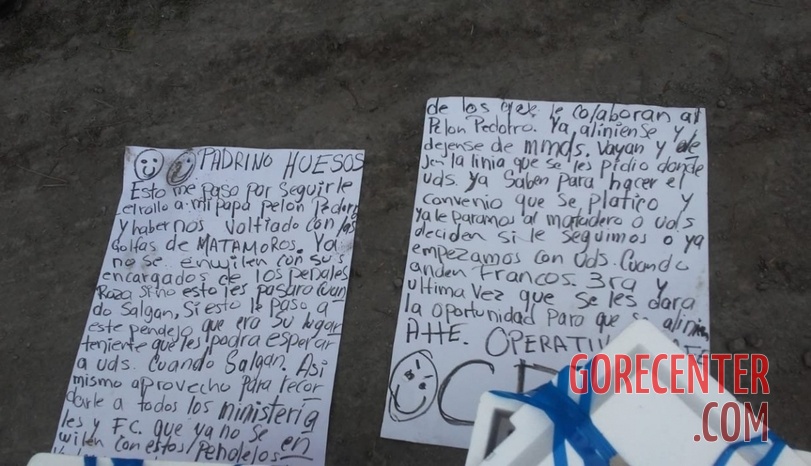 PADRINO HUESOS
Esto me paso por seguirle
el rollo a mi papa pelon
y habernos voltiado con las
golfas de MATAMOROS. Ya
no se enwilen con sus
encargados de los penales
Roza si no esto les pasara cuan
do Salgan, si esto le paso a
este pendejo que era su lugar
teniente que les podra esperar
a uds. cuando Salgan. Asi
mismo aprovecho para recor
darle a todos los ministeria
les y F.C. que ya no se en
wilen con estos Pendejos
de los que le colaboran al
Pelon Ya aliniense y
dejense de mmds. Vayan y de
Jen la linia que se les pidio donde
uds. ya Saben para hacer el
convenio que se platico y
ya le paramos al matadero o uds
deciden si le seguimos o ya
empezamos con uds. Cuando
anden Francos. 3ra y
ultima Vez que se les dara
la oportunidad para que se alinien
ATTE. OPERATIV
C
GORECENTER
.COM